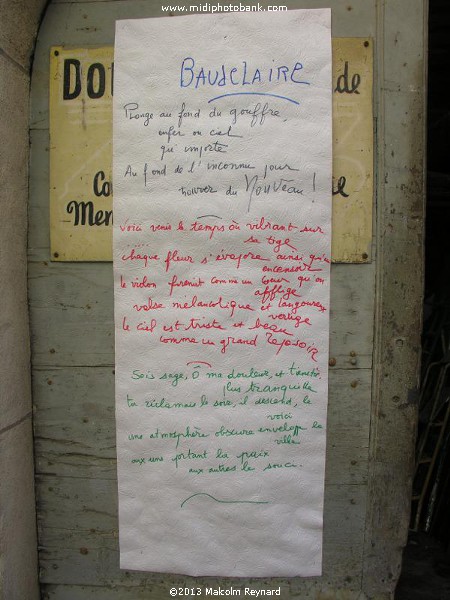 ©2013 Malcolm Reynard
www.midiphotobank.com
DO
de
Co
Men
BAUDELAIRE
Plonge au fond du gouffre,
enfer ou ciel
qu'importe
Au fond de l'inconnu pour
trouver du Nouveau !
Voici venir le temps où vibrant sur
sa tige
chaque fleur s'évapore ainsi qu'un
encensoir
le violon firenut comme un cœur qu'on
afflige
valse melancolique et langoureux
vertige
le ciel est triste et beau
comme un grand reposoir
Sois sage, Ô ma douleur, et
plus tranquille
tu réclamais le soir, il descend, le
voici
une atmosphère obscure envelopp la
ville
aux uns portant la paix
aux autres le souci.
©2013 Malcolm Reynard